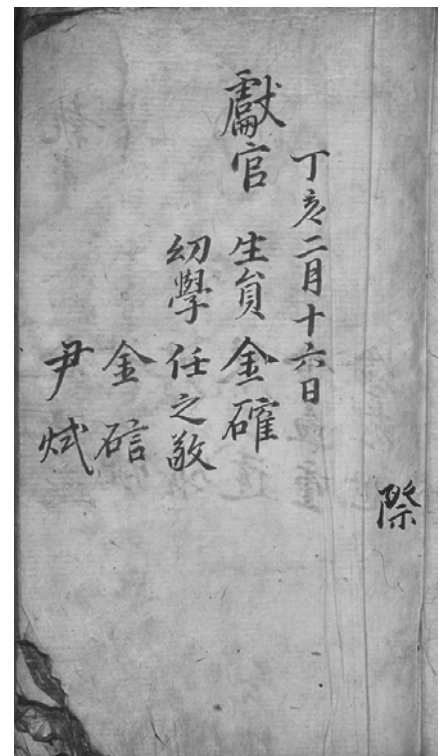 際
丁亥二月十六日
獻官 生員 金確
幼學 任之敬
金硈
尹烒